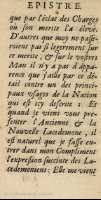 EPISTRE.
que par l'éclat des Charges
où son merite l'a élevé.
D'autres que moy ne passe-
roient pas si legerement sur
ce merite, & sur le vostre;
Mais il n'y a pas d'appa-
rence que j'aille par ce dé-
tail contre un des prin-
cipaux usages de la Nation
qui est icy décrite : Et
quand je viens vous pre-
senter l'Ancienne & la
Nouvelle Lacedemone, il
est naturel que je fasse en-
trer dans mon Compliment
l'expression succinte des La-
cedemoniens ; Elle me vient